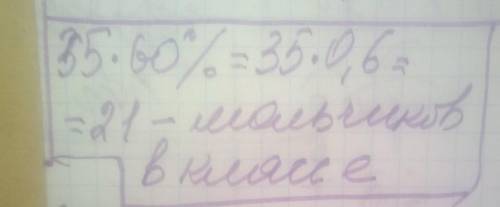 35·60%=35·0,6=
=21-мальчиков
в классе